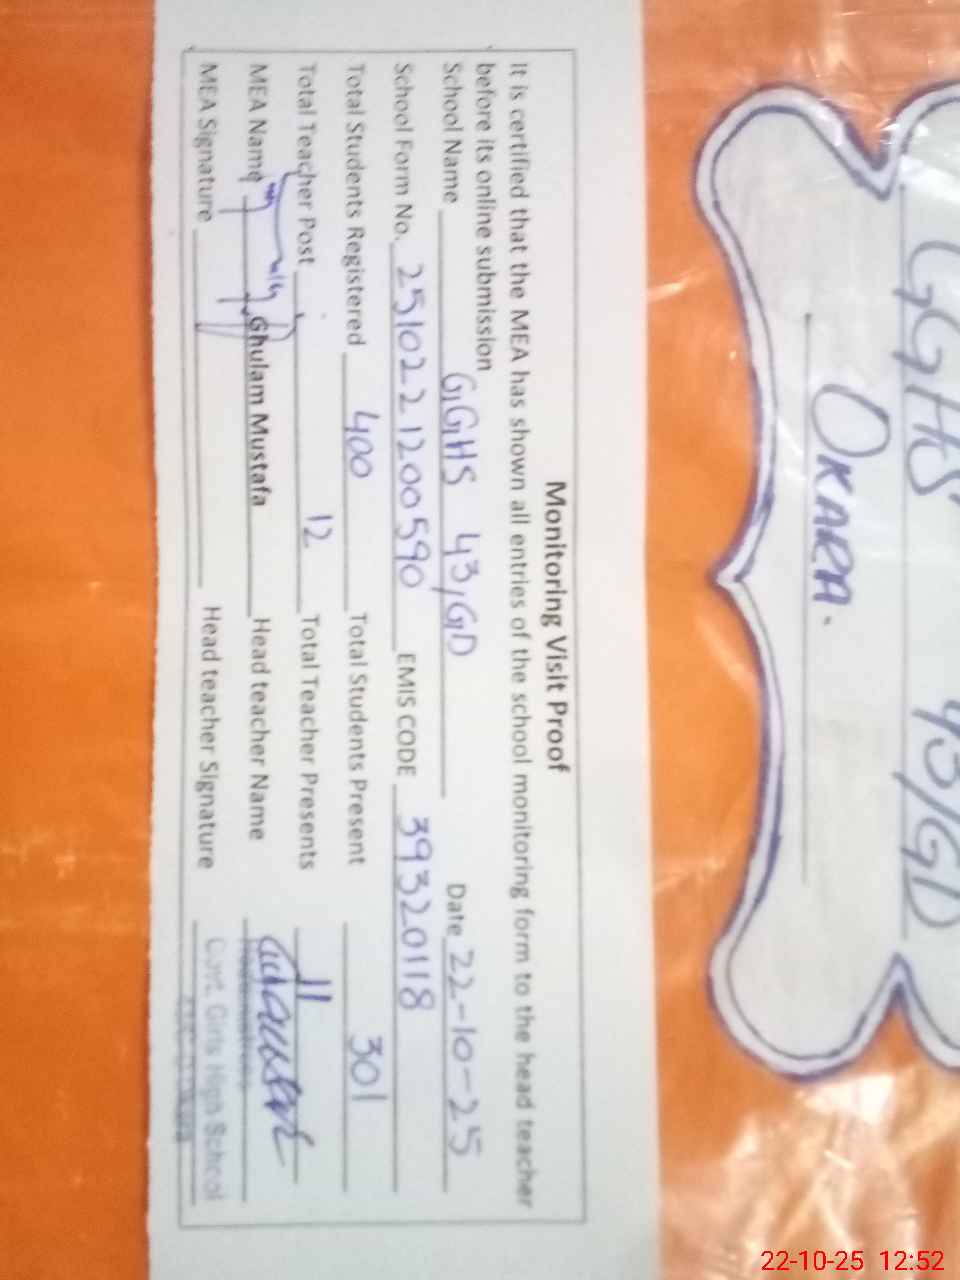 GGHS 43/GD
OKARA.
Monitoring Visit Proof
It is certified that the MEA has shown all entries of the school monitoring form to the head teacher
before its online submission
School Name GGHS 43/GD Date 22-10-25
School Form No. 2510221200590 EMIS CODE 39320118
Total Students Registered 400 Total Students Present 301
Total Teacher Post 12 Total Teacher Presents 11
MEA Name Ghulam Mustafa Head teacher Name
MEA Signature Head teacher Signature
Headmistress
Govt. Girls High School
22-10-25 12:52